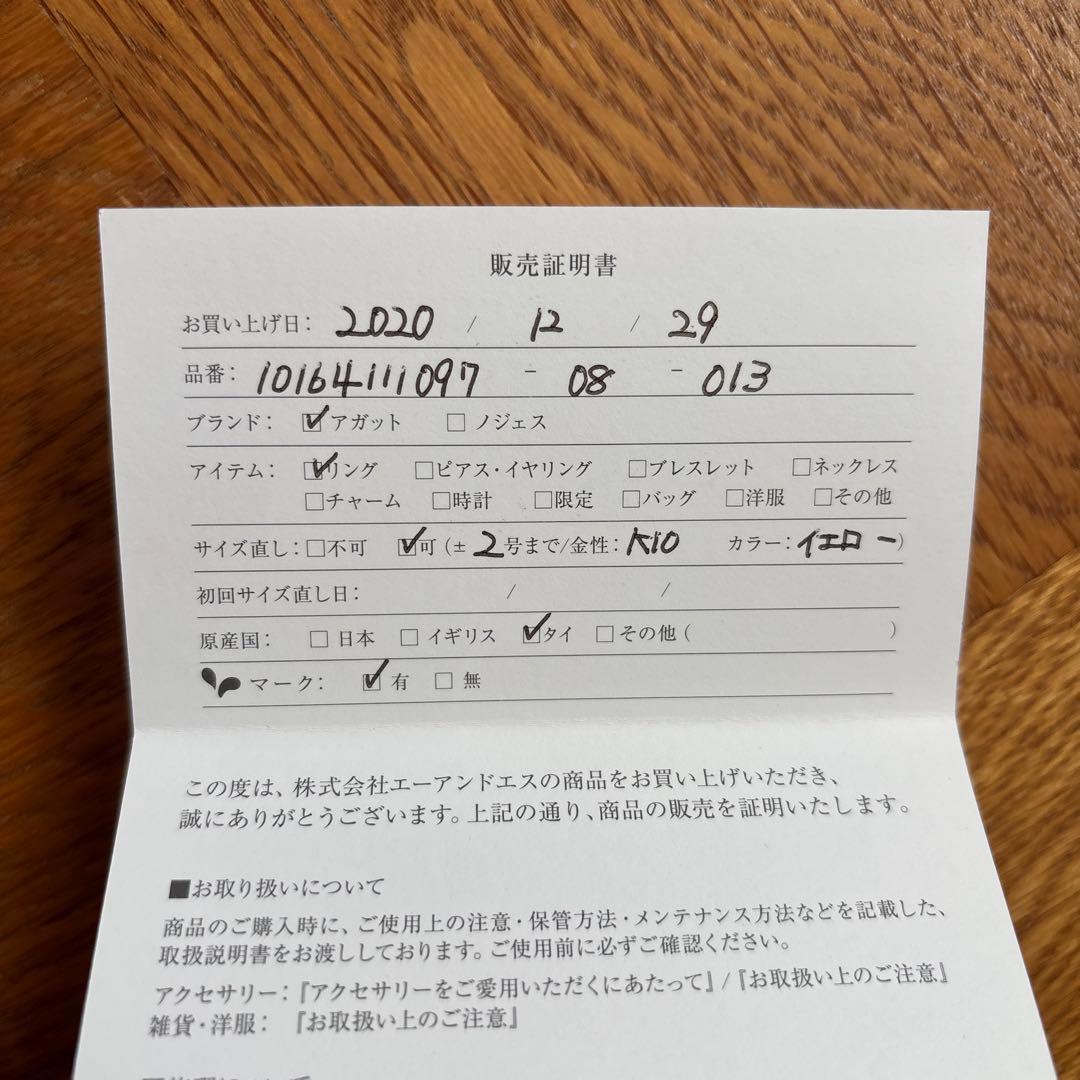 販売証明書
お買い上げ日： 2020 / 12 / 29
品番： 10164111097 - 08 - 013
ブランド： ☑アガット □ノジェス
アイテム： ☑リング □ピアス・イヤリング □ブレスレット □ネックレス
□チャーム □時計 □限定 □バッグ □洋服 □その他
サイズ直し：□不可 ☑可（± 2 号まで/金性：K10 カラー：イエロー）
初回サイズ直し日： / /
原産国： □日本 □イギリス ☑タイ □その他（ ）
マーク： ☑有 □無
この度は、株式会社エーアンドエスの商品をお買い上げいただき、
誠にありがとうございます。上記の通り、商品の販売を証明いたします。
■お取り扱いについて
商品のご購入時に、ご使用上の注意・保管方法・メンテナンス方法などを記載した、
取扱説明書をお渡ししております。ご使用前に必ずご確認ください。
アクセサリー：『アクセサリーをご愛用いただくにあたって』/『お取扱い上のご注意』
雑貨・洋服： 『お取扱い上のご注意』